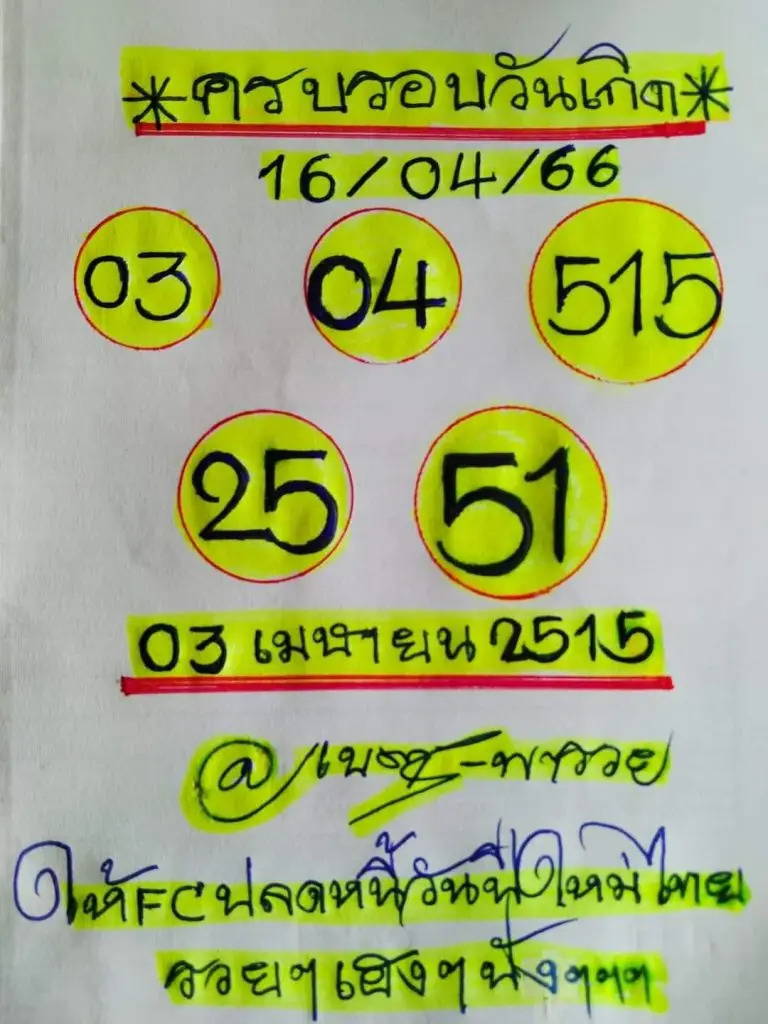 *ครบรอบวันเกิด*
16/04/66
03 04 515
25 51
03 เมษายน 2515
@เบสท์-พารวย
ให้FCปลดหนี้วันปีใหม่ไทย
รวยๆเฮงๆปังๆๆๆ